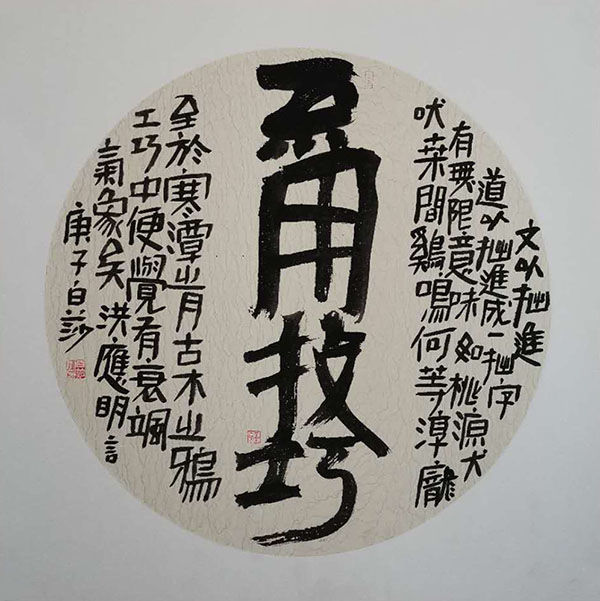 文以拙進
道以拙進成一拙字
有無限意味如桃源犬
吠桒間鷄鳴何等淳龐
甭技巧
至於寒潭之月古木之鴉
工巧中便覺有衰颯
氣象矣 洪應明言
庚子白莎